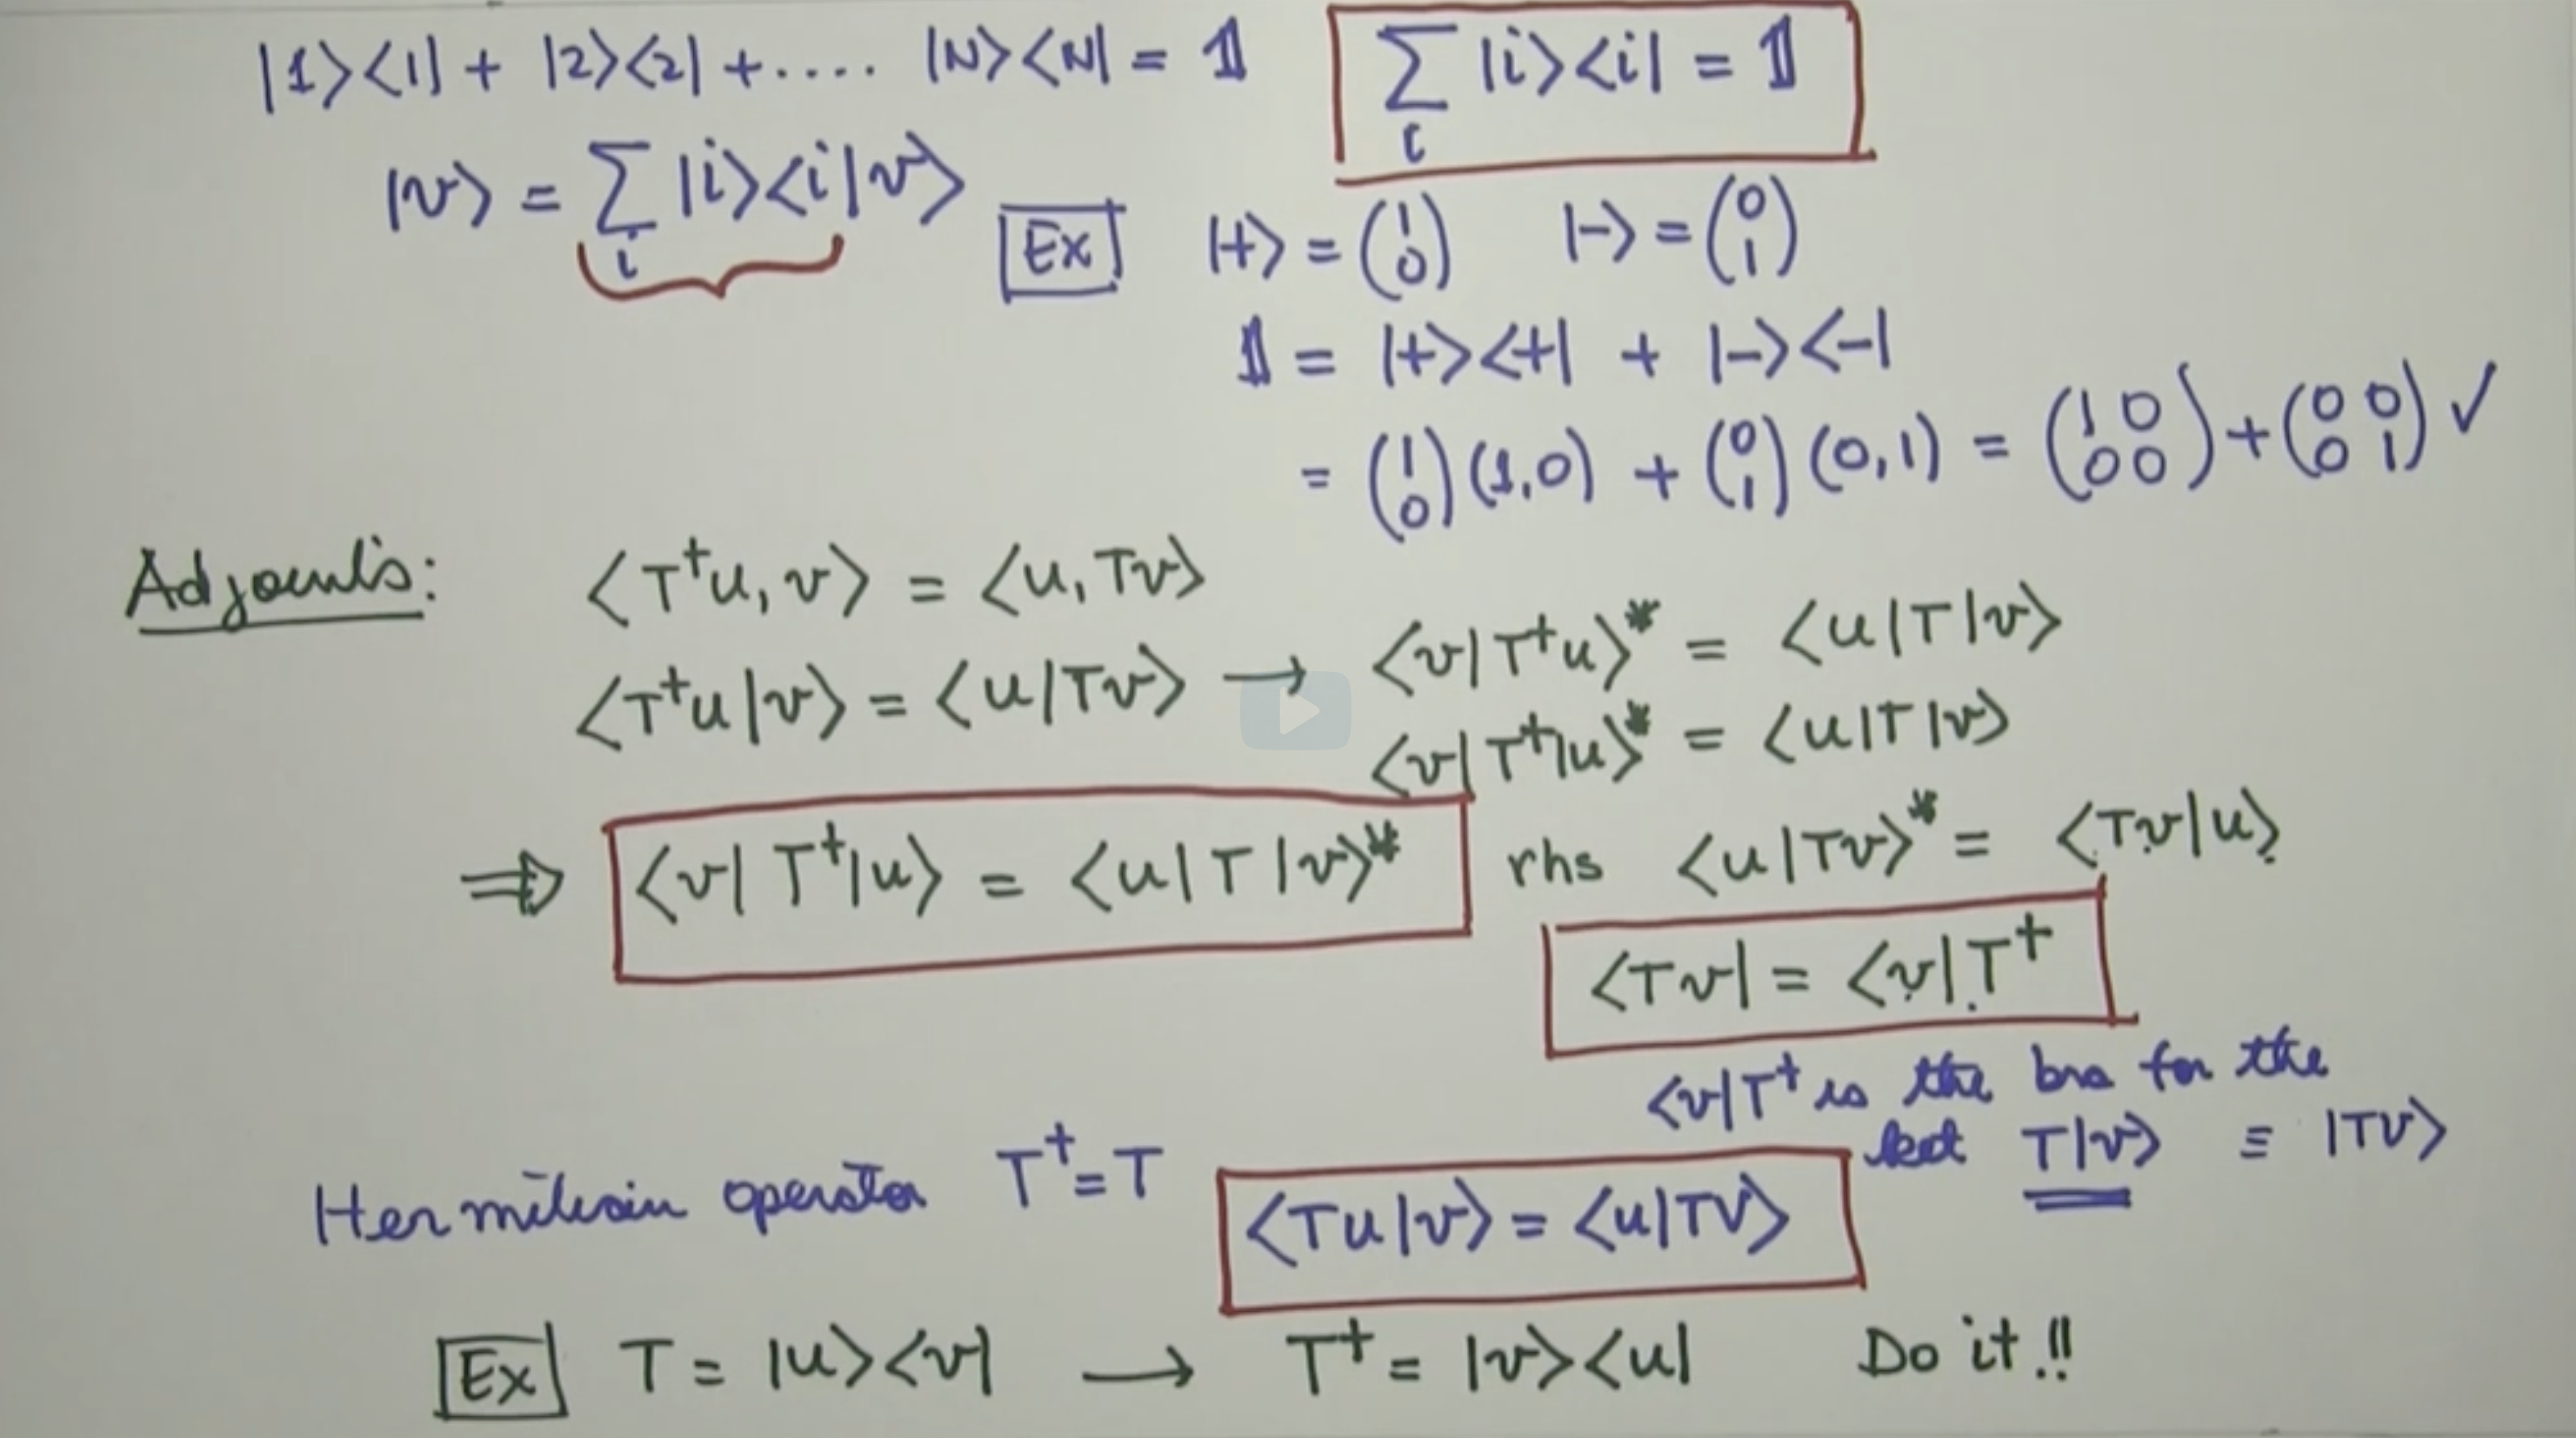 |1><1| + |2><2| + .... |N><N| = 𝟙
∑ᵢ |i><i| = 𝟙
|v> = ∑ᵢ |i><i|v>
Ex |+> = (1 0) |-> = (0 1)
𝟙 = |+><+| + |-><-|
= (1 0)(1,0) + (0 1)(0,1) = (1 0 0 0) + (0 0 0 1) ✓
Adjoints: <T†u, v> = <u, Tv>
<T†u|v> = <u|Tv> → <v|T†u>* = <u|T|v>
<v|T†|u>* = <u|T|v>
⇒ <v|T†|u> = <u|T|v>* rhs <u|Tv>* = <Tv|u>
<Tv| = <v|T†
<v|T† is the bra for the
ket T|v> ≡ |Tv>
Hermitian operator T† = T <Tu|v> = <u|Tv>
Ex T = |u><v| → T† = |v><u| Do it!!